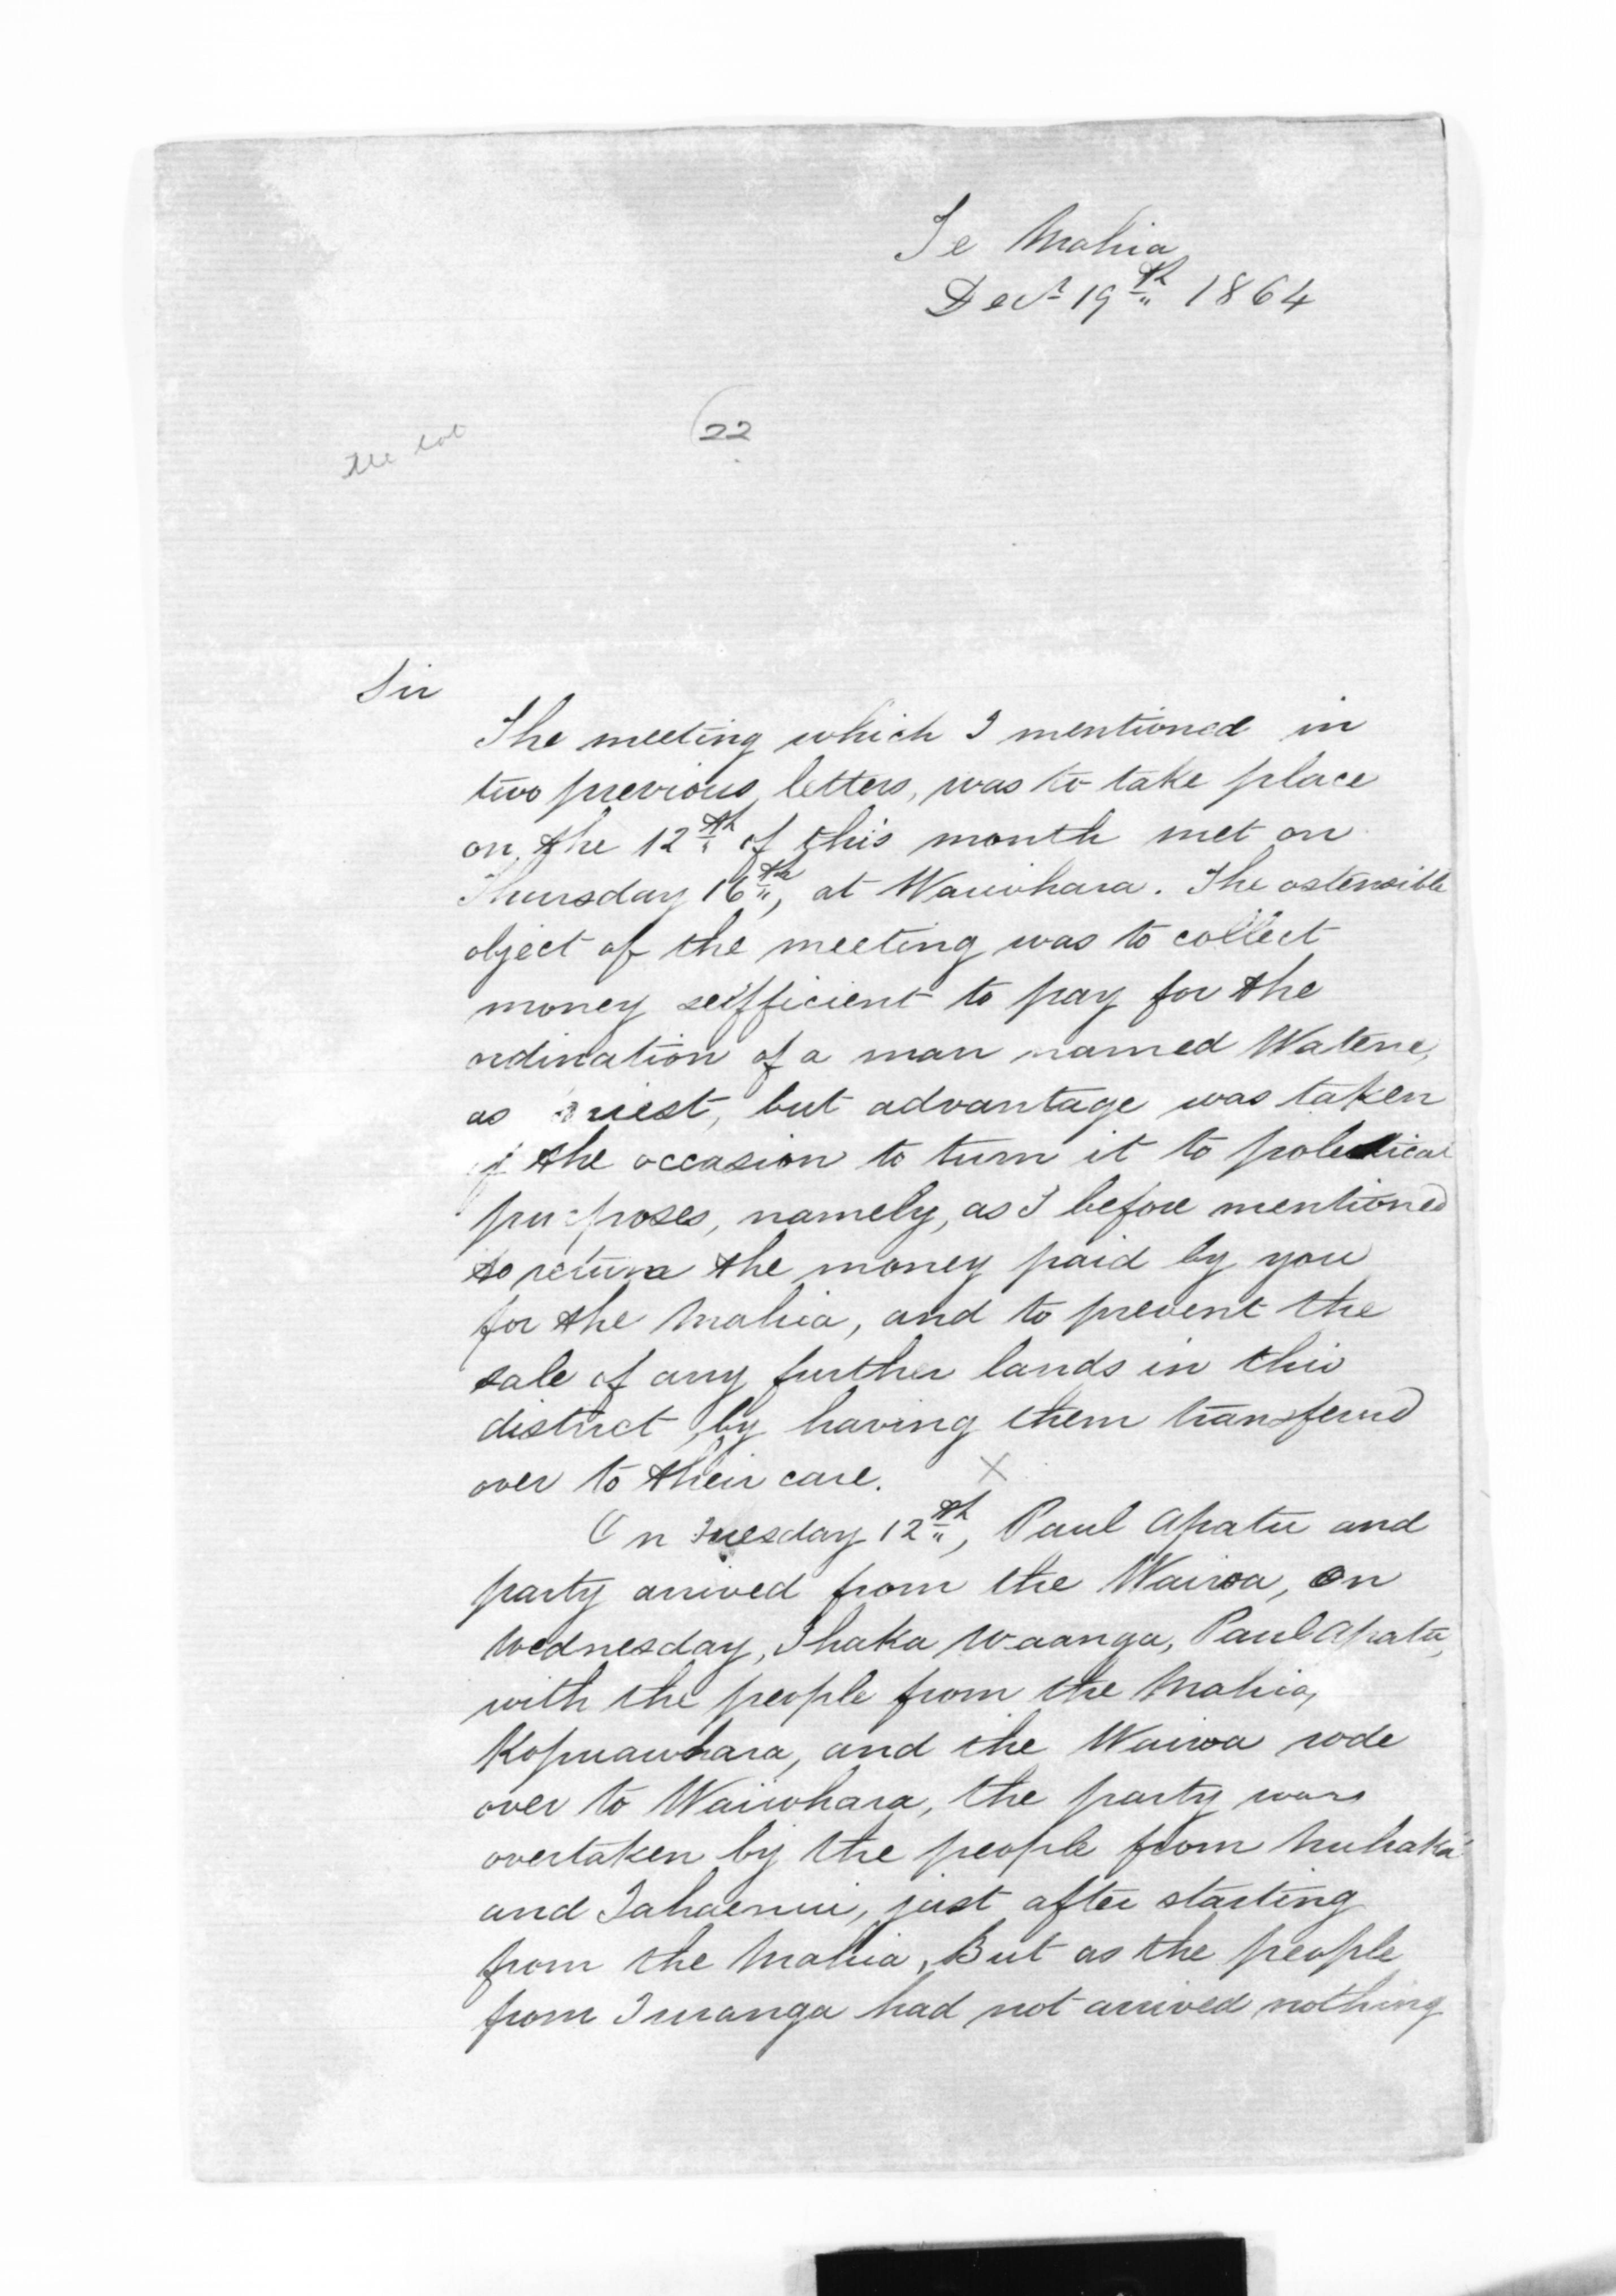 Te Mahia
Decr 19th 1864
22
Sir
The meeting which I mentioned in
two previous letters, was to take place
on the 12th of this month met on
Thursday 16th, at Waiwhara. The ostensible
object of the meeting was to collect
money sufficient to pay for the
ordination of a man named Watene,
as priest, but advantage was taken
of the occasion to turn it to political
purposes, namely, as I before mentioned
to return the money paid by you
for the Mahia, and to prevent the
sale of any further lands in this
district, by having them transferred
over to their care. X
On Tuesday 12th, Paul Apatu and
party arrived from the Wairoa, on
Wednesday, Ihaka Waanga, Paul Apatu,
with the people from the Mahia,
Kopuawhara, and the Wairoa rode
over to Waiwhara, the party was
overtaken by the people from Nuhaka
and Tahaenui, just after starting
from the Mahia, But as the people
from Turanga had not arrived nothing